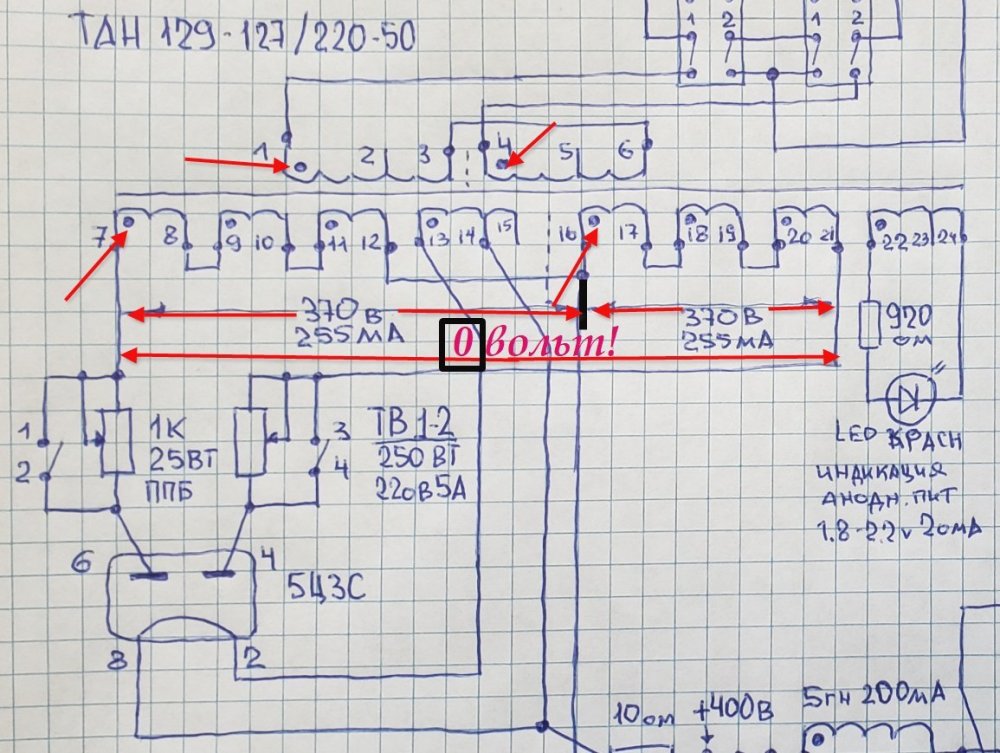 ТАН 129-127/220-50
1 2 1 2
1 2 3 4 5 6
7 8 9 10 11 12 13 14 15 16 17 18 19 20 21 22 23 24
370 В
255 МА
370 В
255 МА
0 вольт!
920
ОМ
1
2
1К
25ВТ
ППБ
3
4
ТВ 1-2
250 ВТ
220В 5А
LED КРАСН
ИНДИКАЦИЯ
АНОДН. ПИТ
1.8-2.2v 20МА
6 4
5Ц3С
8 2
10 ОМ +400В 5ГН 200МА